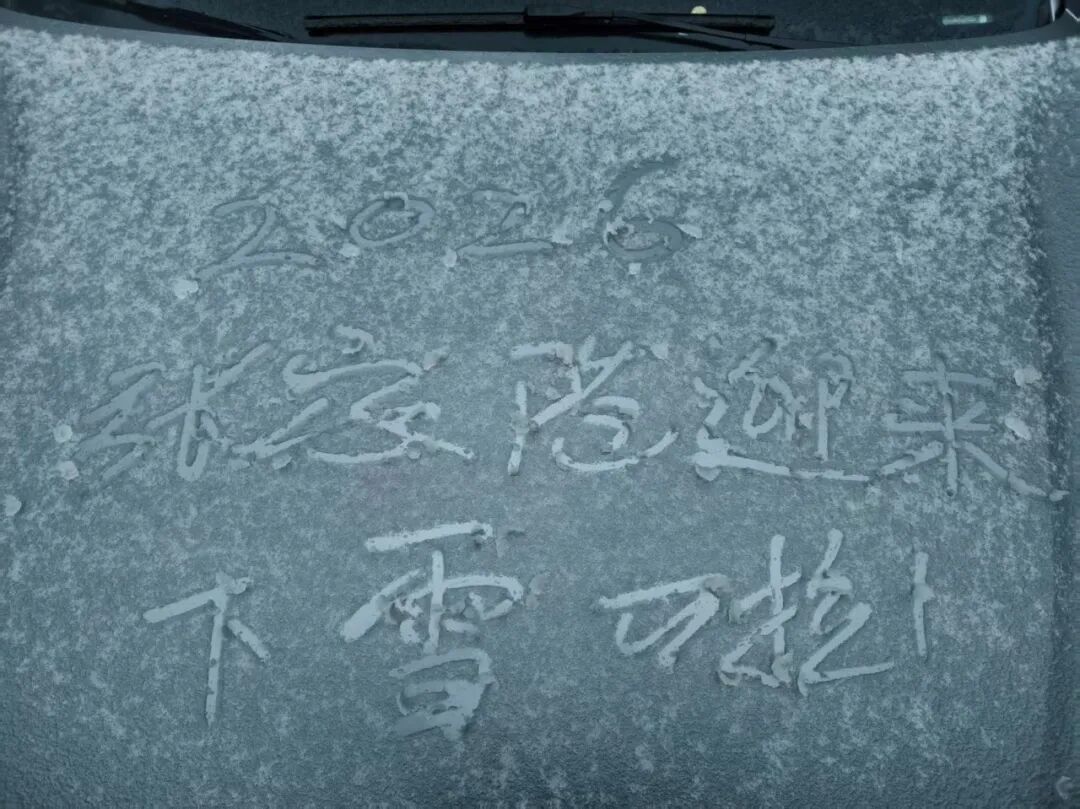 2026
张家港迎来
下雪啦!